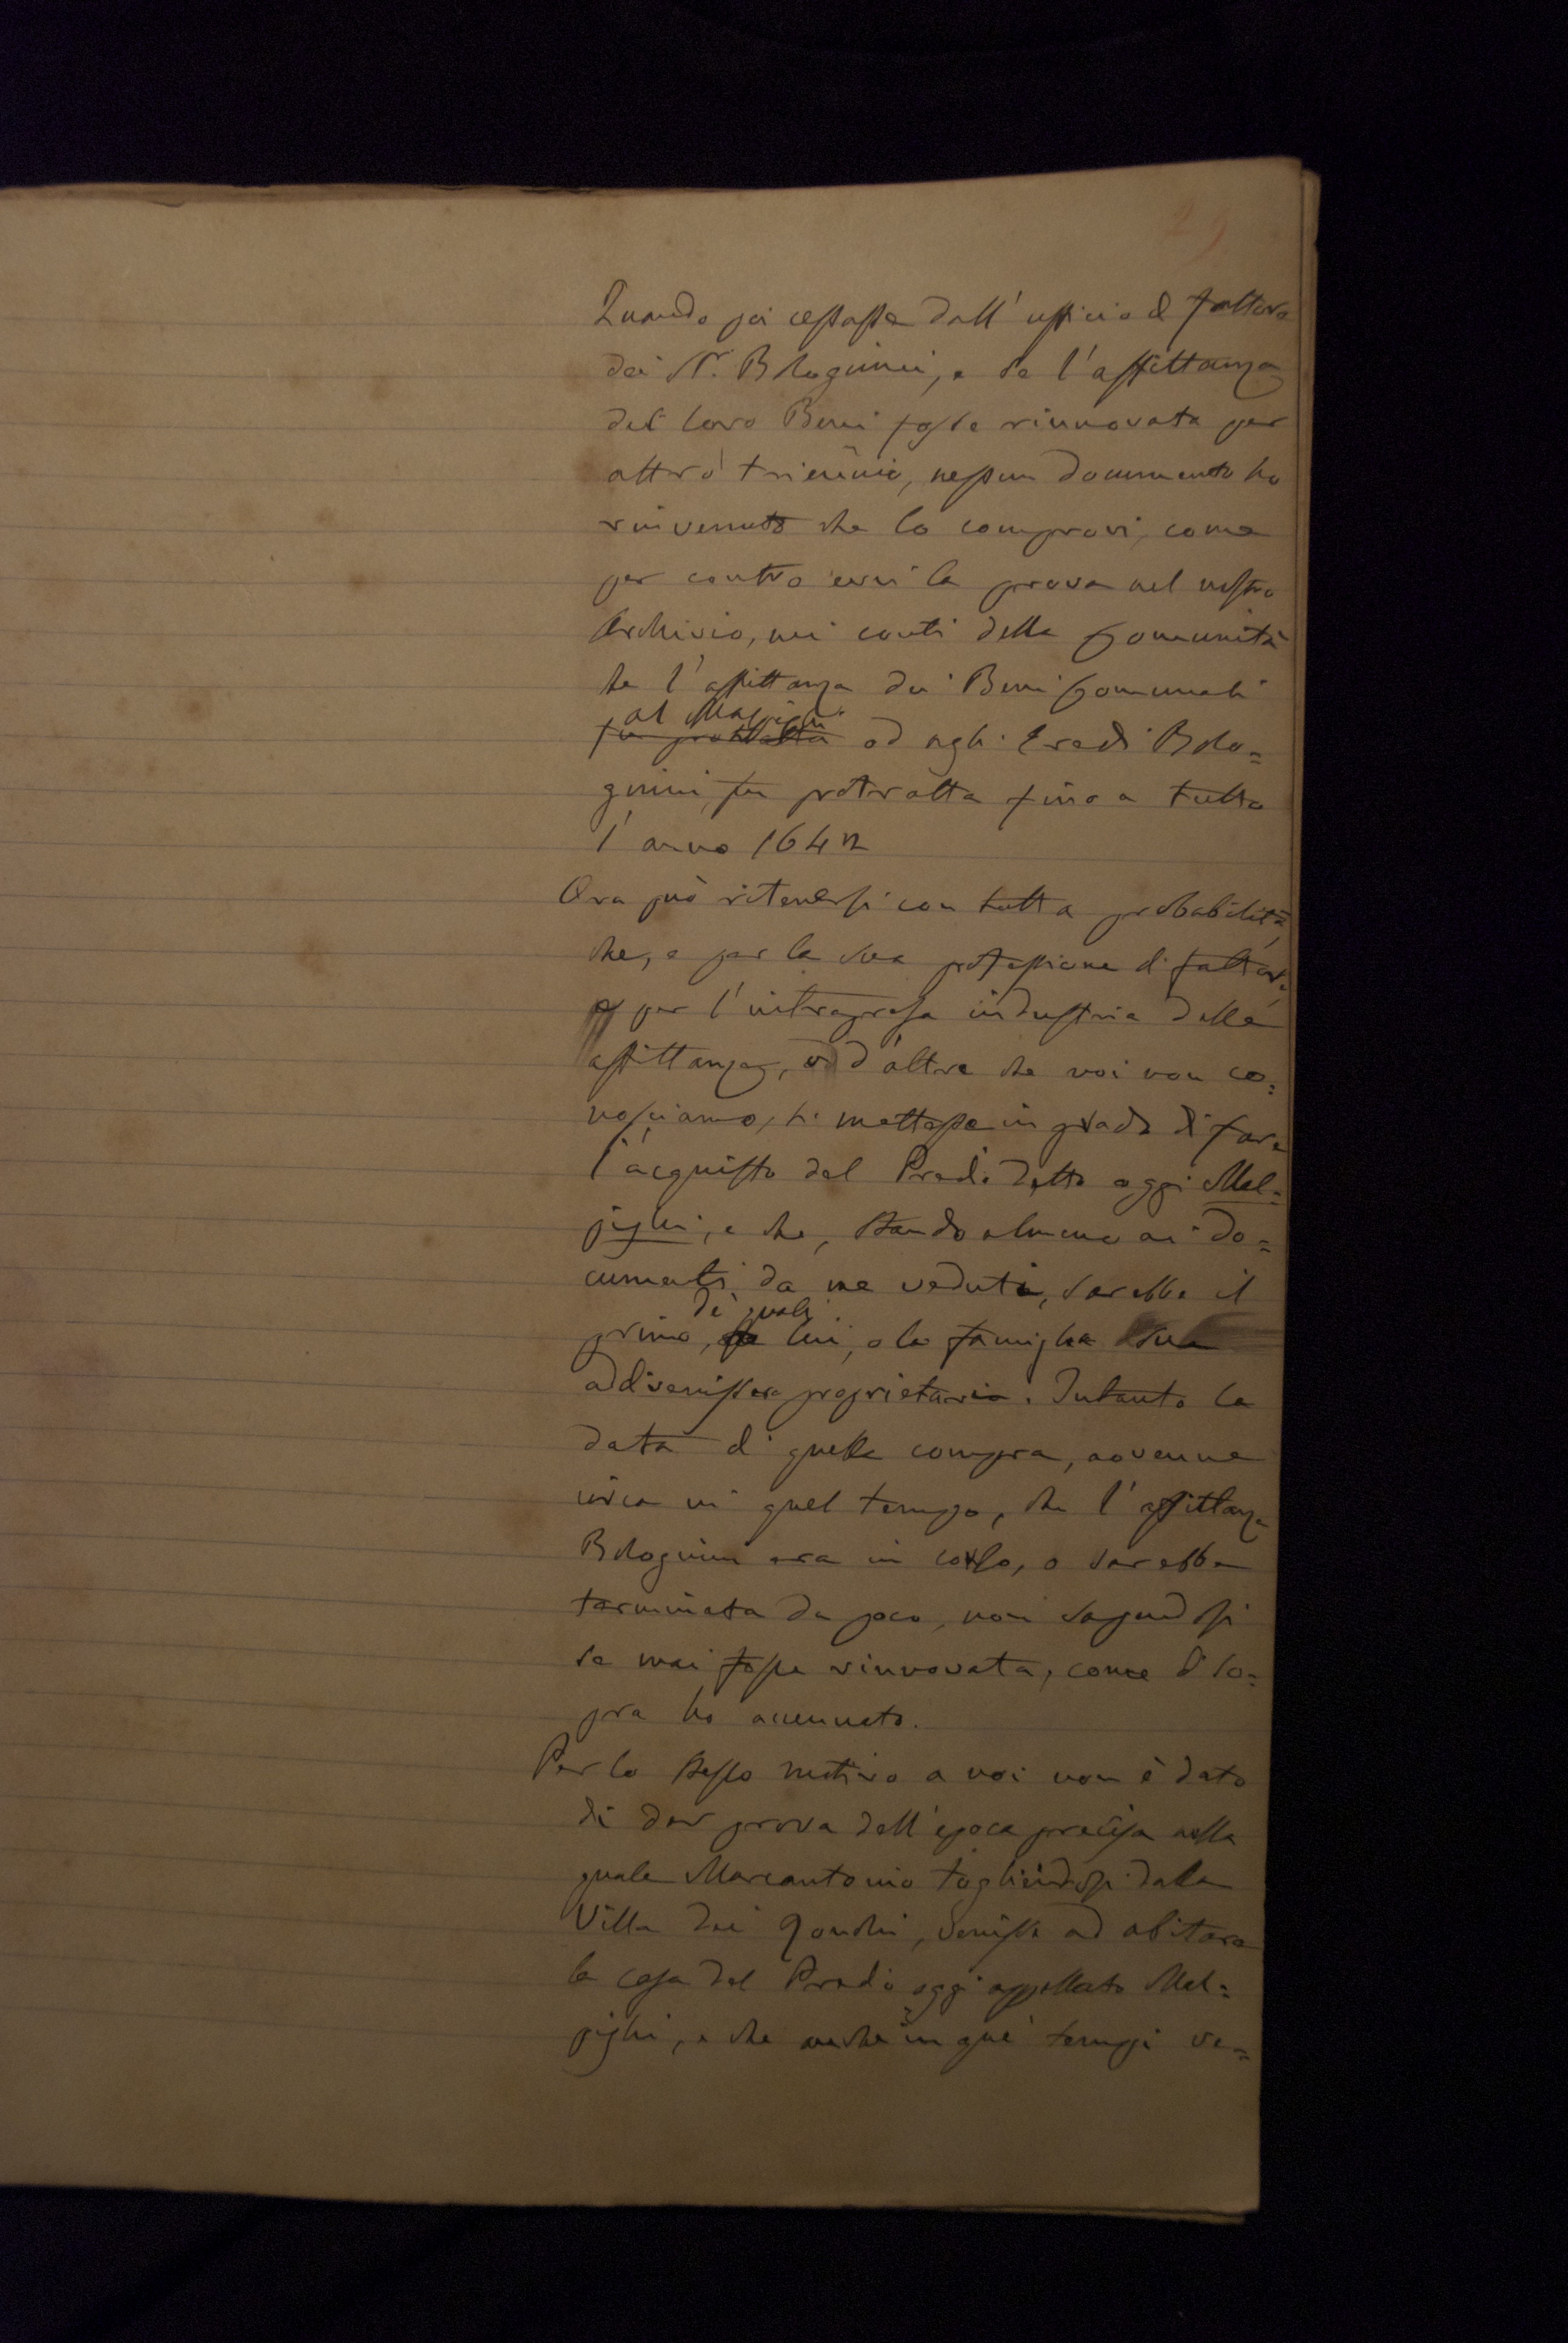 29
Quando poi cessasse dall'ufficio di fattore
dei Sr. Bolognini, e se l'affittanza
dei loro Beni fosse rinnovata per
altro triennio, nessun documento ho
rinvenuto che lo comprovi, come
per contro evvi la prova nel nostro
Archivio, nei conti della Comunità
che l'affittanza dei Beni Comunali
al Malpighi
fu protratta od agli Eredi Bolo=
gnini, fu protratta fino a tutto
l'anno 1642
Ora può ritenersi con tutta probabilità,
che, e per la sua professione di fattore,
e per l'intrapresa industria delle
affittanze, od altre che noi non co=
nosciamo, si mettesse in grado di fare
l'acquisto del Predio detto oggi Mal=
pighi, e che, stando almeno ai do=
cumenti da me veduti, sarebbe il
de' quali
primo, lui, o la famiglia sua
addivenissero proprietario. Intanto la
data di quella compra, avvenne
circa in quel tempo, che l'affittanza
Bolognini era in corso, o sarebbe
terminata da poco, non sapendosi
se mai fosse rinnovata, come di so=
pra ho accennato.
Per lo stesso motivo a noi non è dato
di dar prova dell'epoca precisa nella
quale Marcantonio togliendosi dalla
Villa dei Ronchi, venisse ad abitare
la casa del Predio oggi appellato Mal=
pighi, e che anche in que' tempi ve=